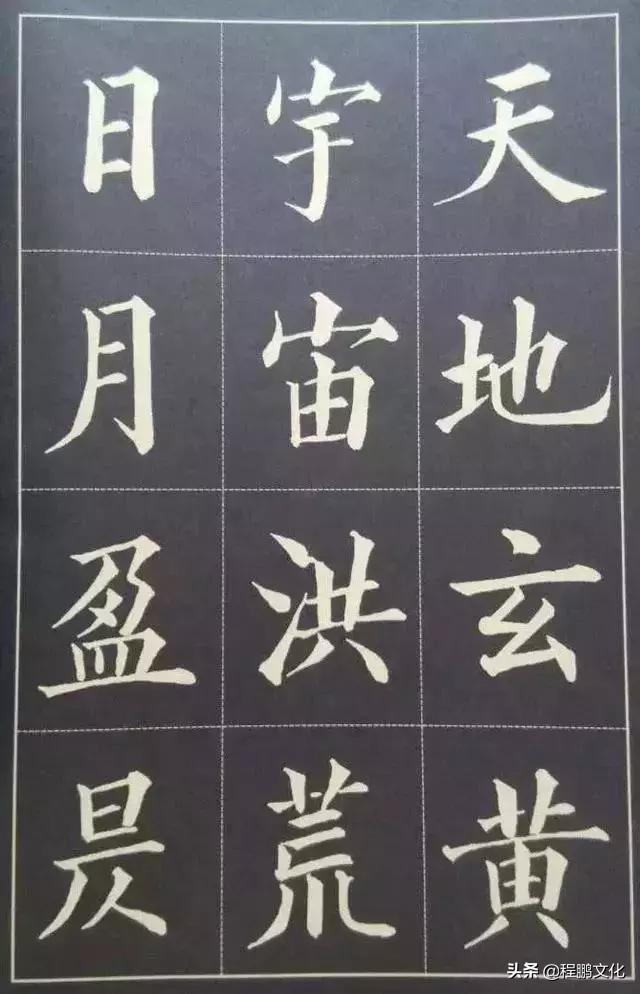 天地玄黄
宇宙洪荒
日月盈昃
头条 @程鹏文化